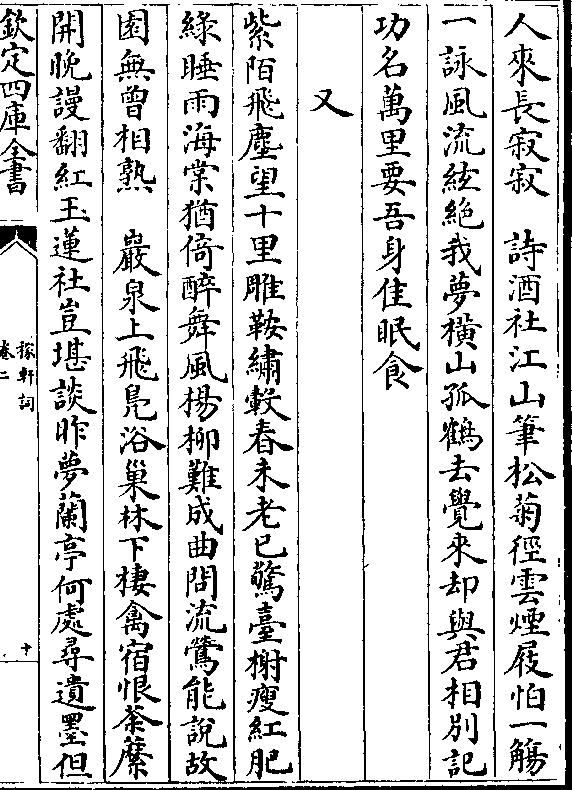 人來長寂寂　詩酒社江山筆松菊徑雲煙屐怕一觴
一詠風流絃絶我夢横山孤鶴去覺來却與君相别記
功名萬里要吾身佳眠食
又
紫陌飛塵望十里雕鞍繡轂春未老已驚臺榭瘦紅肥
緑睡雨海棠猶倚醉舞風楊柳難成曲問流鶯能說故
園無曾相熟　巖泉上飛鳧浴巢林下棲禽宿恨荼䕷
開晚謾翻紅玉蓮社豈堪談昨夢蘭亭何處尋遺墨但
欽定四庫全書
稼軒詞
卷二
十